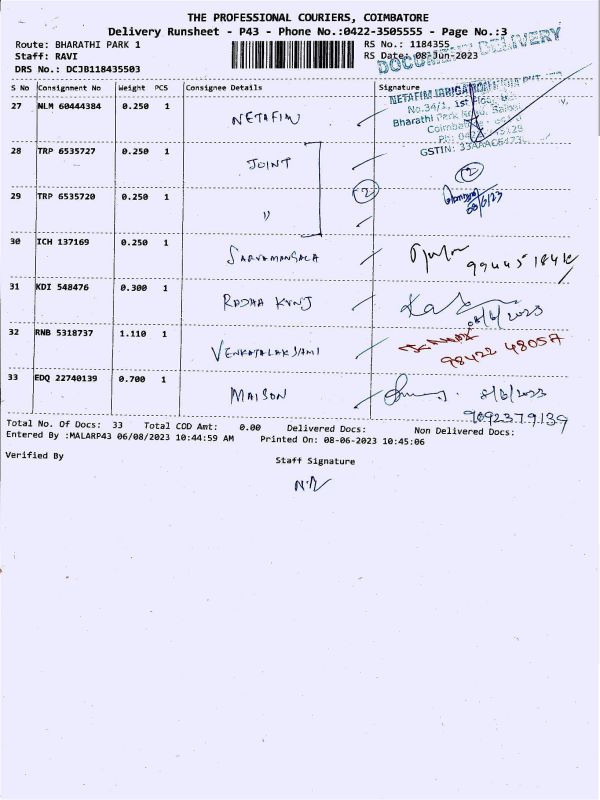 THE PROFESSIONAL COURIERS, COIMBATORE
Delivery Runsheet - P43 - Phone No.:0422-3505555 - Page No.:3
Route: BHARATHI PARK 1 RS No.: 1184355
Staff: RAVI RS Date: 08-Jun-2023
DRS No.: DCJB118435503
DOCUMENT DELIVERY
S No Consignment No Weight PCS Consignee Details Signature
27 NLM 60444384 0.250 1 NETAFIM
NETAFIM IRRIGATION
No.34/1, 1st Floor
Bharathi Park Road,
GSTIN:
28 TRP 6535727 0.250 1 JOINT
2 2
29 TRP 6535720 0.250 1 "
08/6/23
30 ICH 137169 0.250 1 SARVAMANGALA
31 KDI 548476 0.300 1 RADHA KUNJ
08/6/2023
32 RNB 5318737 1.110 1 VENKATALAKSHMI
98422 48057
33 EDQ 22740139 0.700 1 MAISON 8/6/2023
9092379139
Total No. Of Docs: 33 Total COD Amt: 0.00 Delivered Docs: Non Delivered Docs:
Entered By :MALARP43 06/08/2023 10:44:59 AM Printed On: 08-06-2023 10:45:06
Verified By Staff Signature